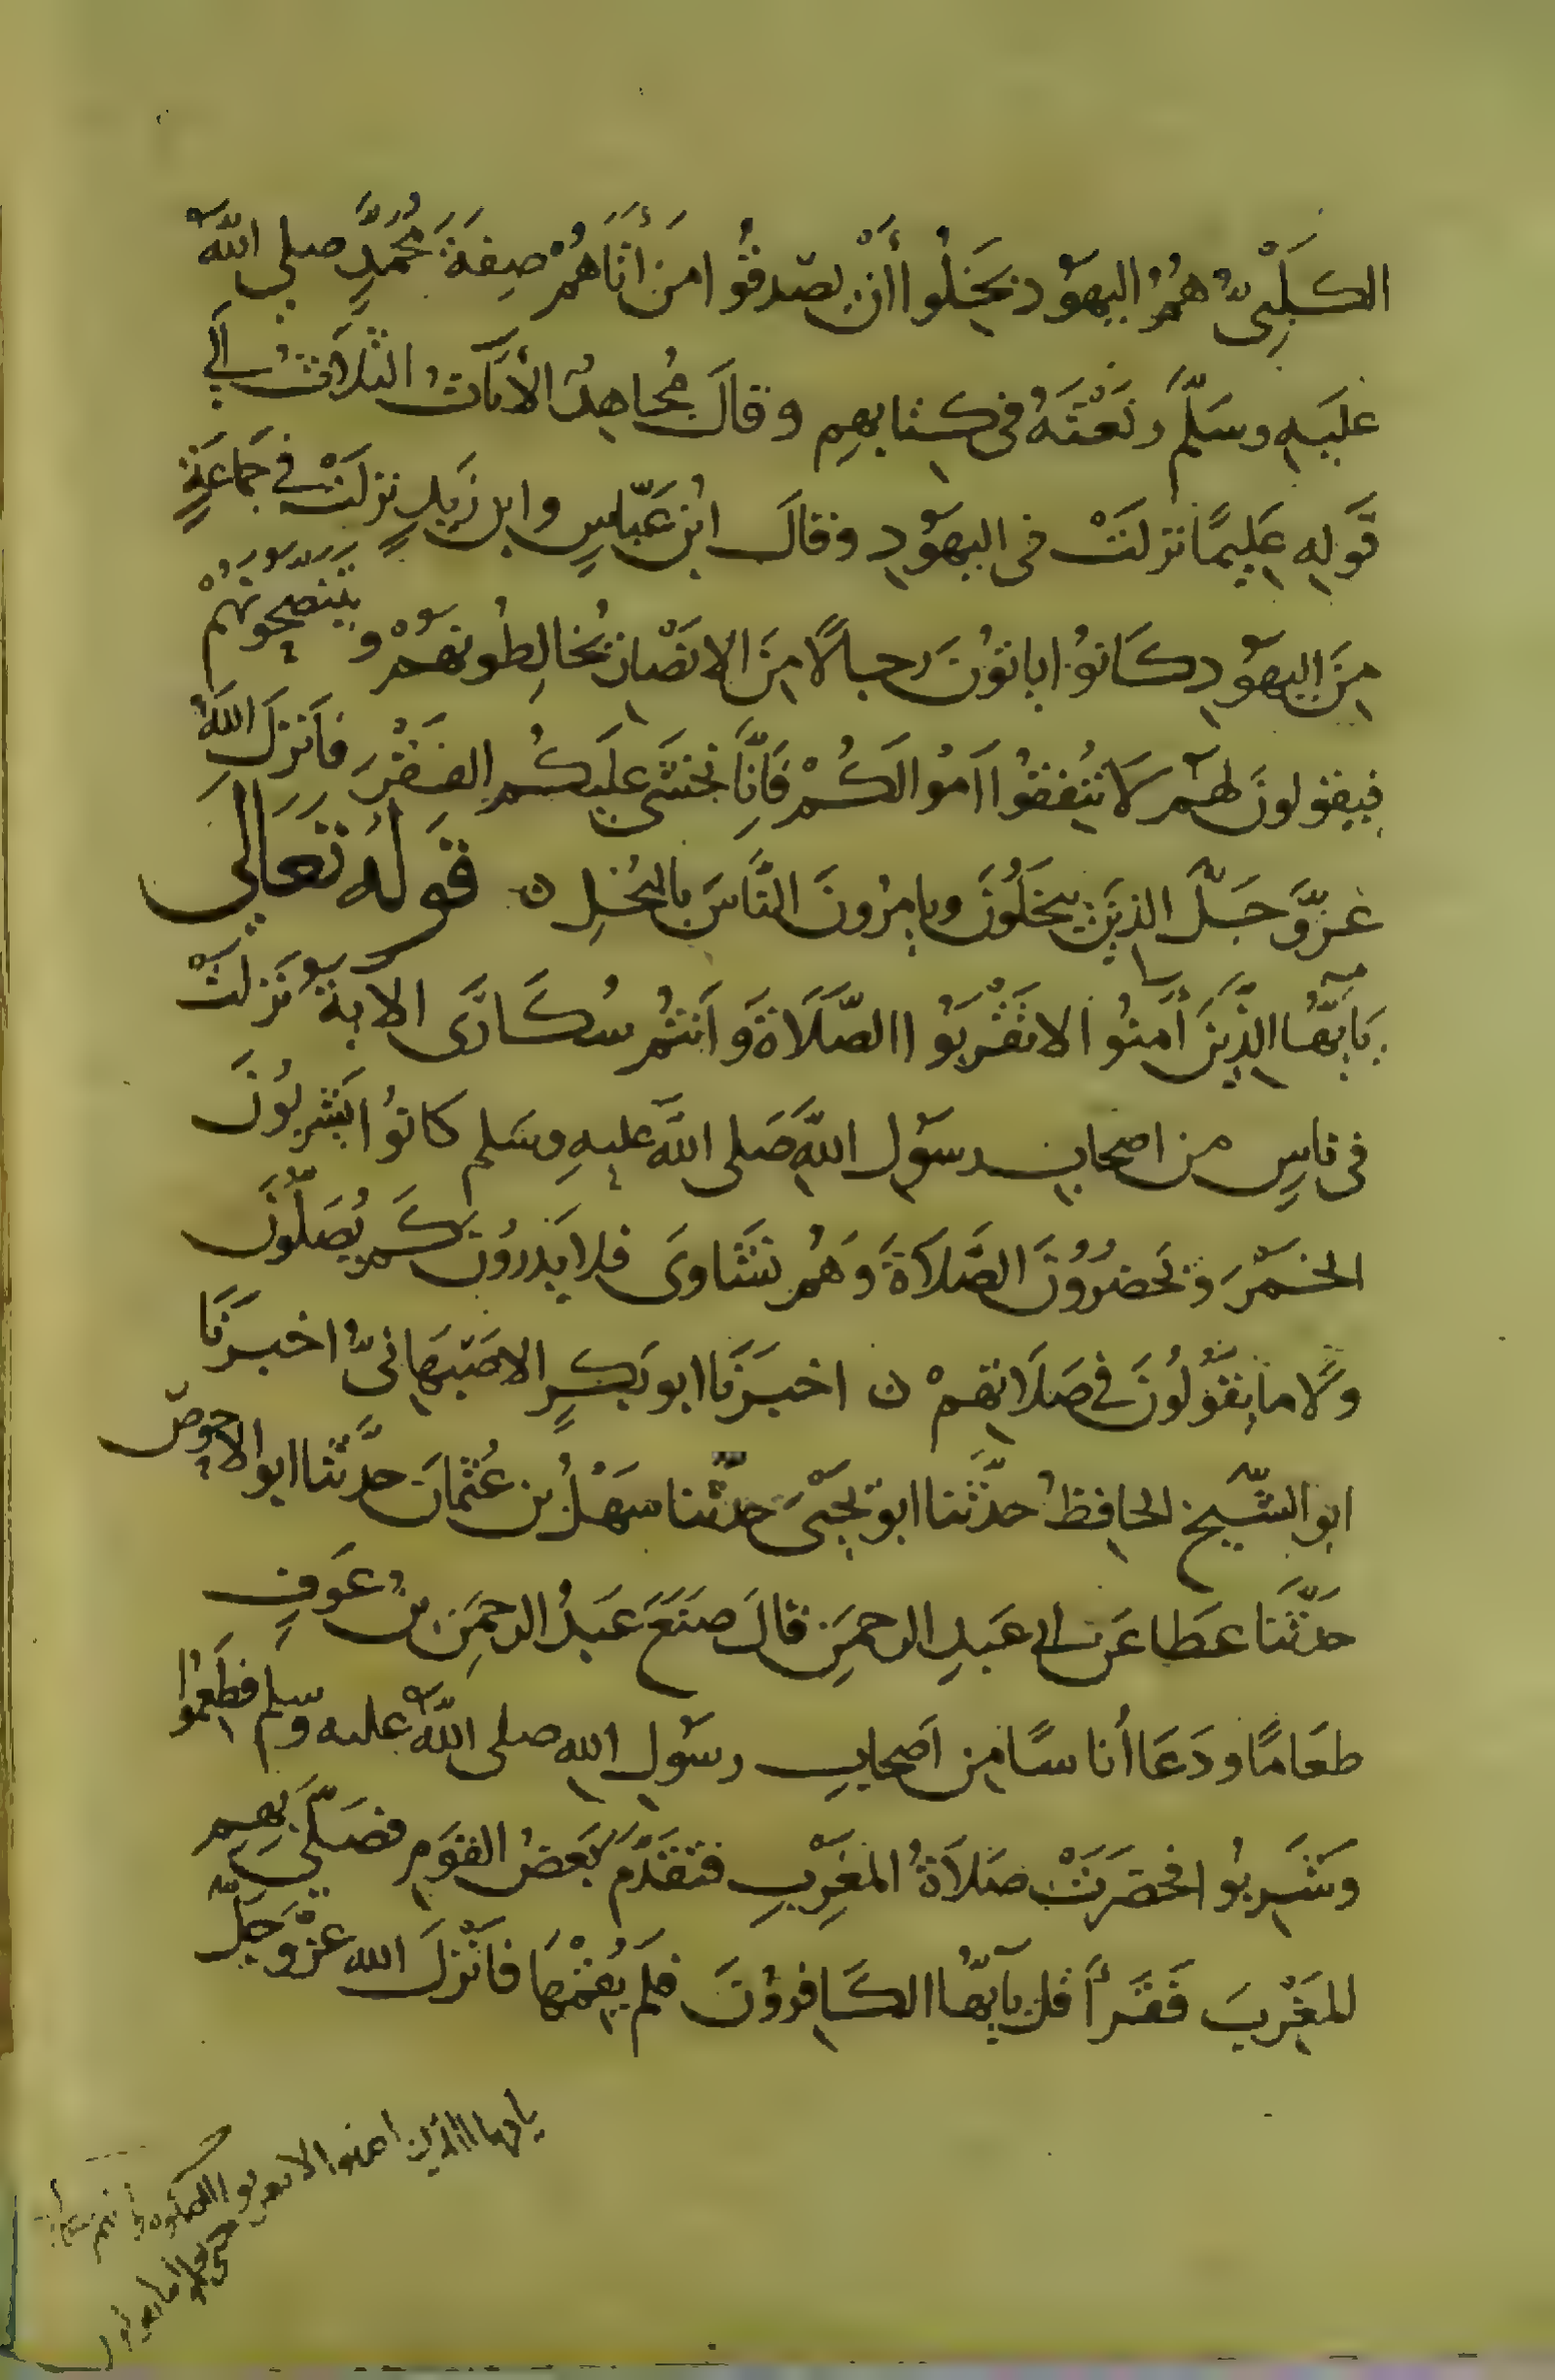 الكَلْبِيُّ هُمُ اليهوُد بَخِلُوا أَنْ يصَدقُوا مَنْ أتَاهُمْ صِفَةَ مُحَمَّدٍ صلى اللهُ
عليَهِ وسَلَّمَ ونَعْتَهُ في كتابهِم وقالَ مُجاهِدٌ الأيَاتُ الثلَاثُ إلى
قَولِهِ عَلِيمًا نزلَتْ في اليهوُدِ وقالَ ابْن عَبَّاسٍ وابن زَيدٍ نزلَتْ في جَمَاعَةٍ
مِنَ اليهوُدِ كَانوُا ياتوُنَ رجالًا مِنَ الانصَارِ يُخالِطُونهُمْ ويَنتَصِحُونَهُمْ
فيقولونَ لهُم لَا تُنفقُوا اَموُالَكُمْ فَاِنَّا نخشَى عليَكُم الفَقْرَ فاَنزلَ اللهُ
عَزَّ وَجَلَّ الذينَ يبخَلُونَ ويامرُونَ النَّاسَ بالبُخلِ ن قَولُهُ تَعَالَى
يَايُّهَا الذَّينَ أمنُوا لا تَقْربُوا الصَّلَاةَ وَاَنتُم سُكَارَى الاية نَزلتْ
في ناسٍ من اصحابِ رسوُل اللهِ صَلى اللهُ عليهِ وسَلم كانوُا يَشربُونَ
الخمَرَ وَيحَضرُوُنَ الصَّلاَةَ وَهُم نَشَاوىَ فلا يَدروُن كَم يُصَلُّونَ
ولَا ما يقوُلُونَ في صَلاَتهِمْ ن اخبَرَنَا ابو بَكرٍ الاصَبهَانيُّ اخبرَنَا
ابو الشَّيخ الحافظُ حدَّثنا ابو يَحْيَى حدثنا سَهْلُ بن عُثمانَ حدَّثنا ابو الاحوصِ
حَدَّثنَا عطَا عَن ابى عَبدِ الرحمَنِ قالَ صنَعَ عَبدُ الرحمَن بنُ عوَفٍ
طعَامًا ودَعَا أُناسًا مِن اَصحابِ رسوُلِ الله صلى اللهُ عليه وسلم فطَعِمُوا
وشَرِبوُا فحضَرَتْ صَلاَةُ المغرِبِ فتقَدَّم بَعضُ القوَمِ فصَلَّى بهِم
المغَرِبَ فَقَرأَ قل يآيُّها الكَافروُنَ فلَم يُقِمْهَا فأنْزلَ الله عَزَّ وَجَلَّ
يا ايها الذين امنوا لا تقربوا الصلوة وانتم سكارى
حتى تعلموا ما تقولون